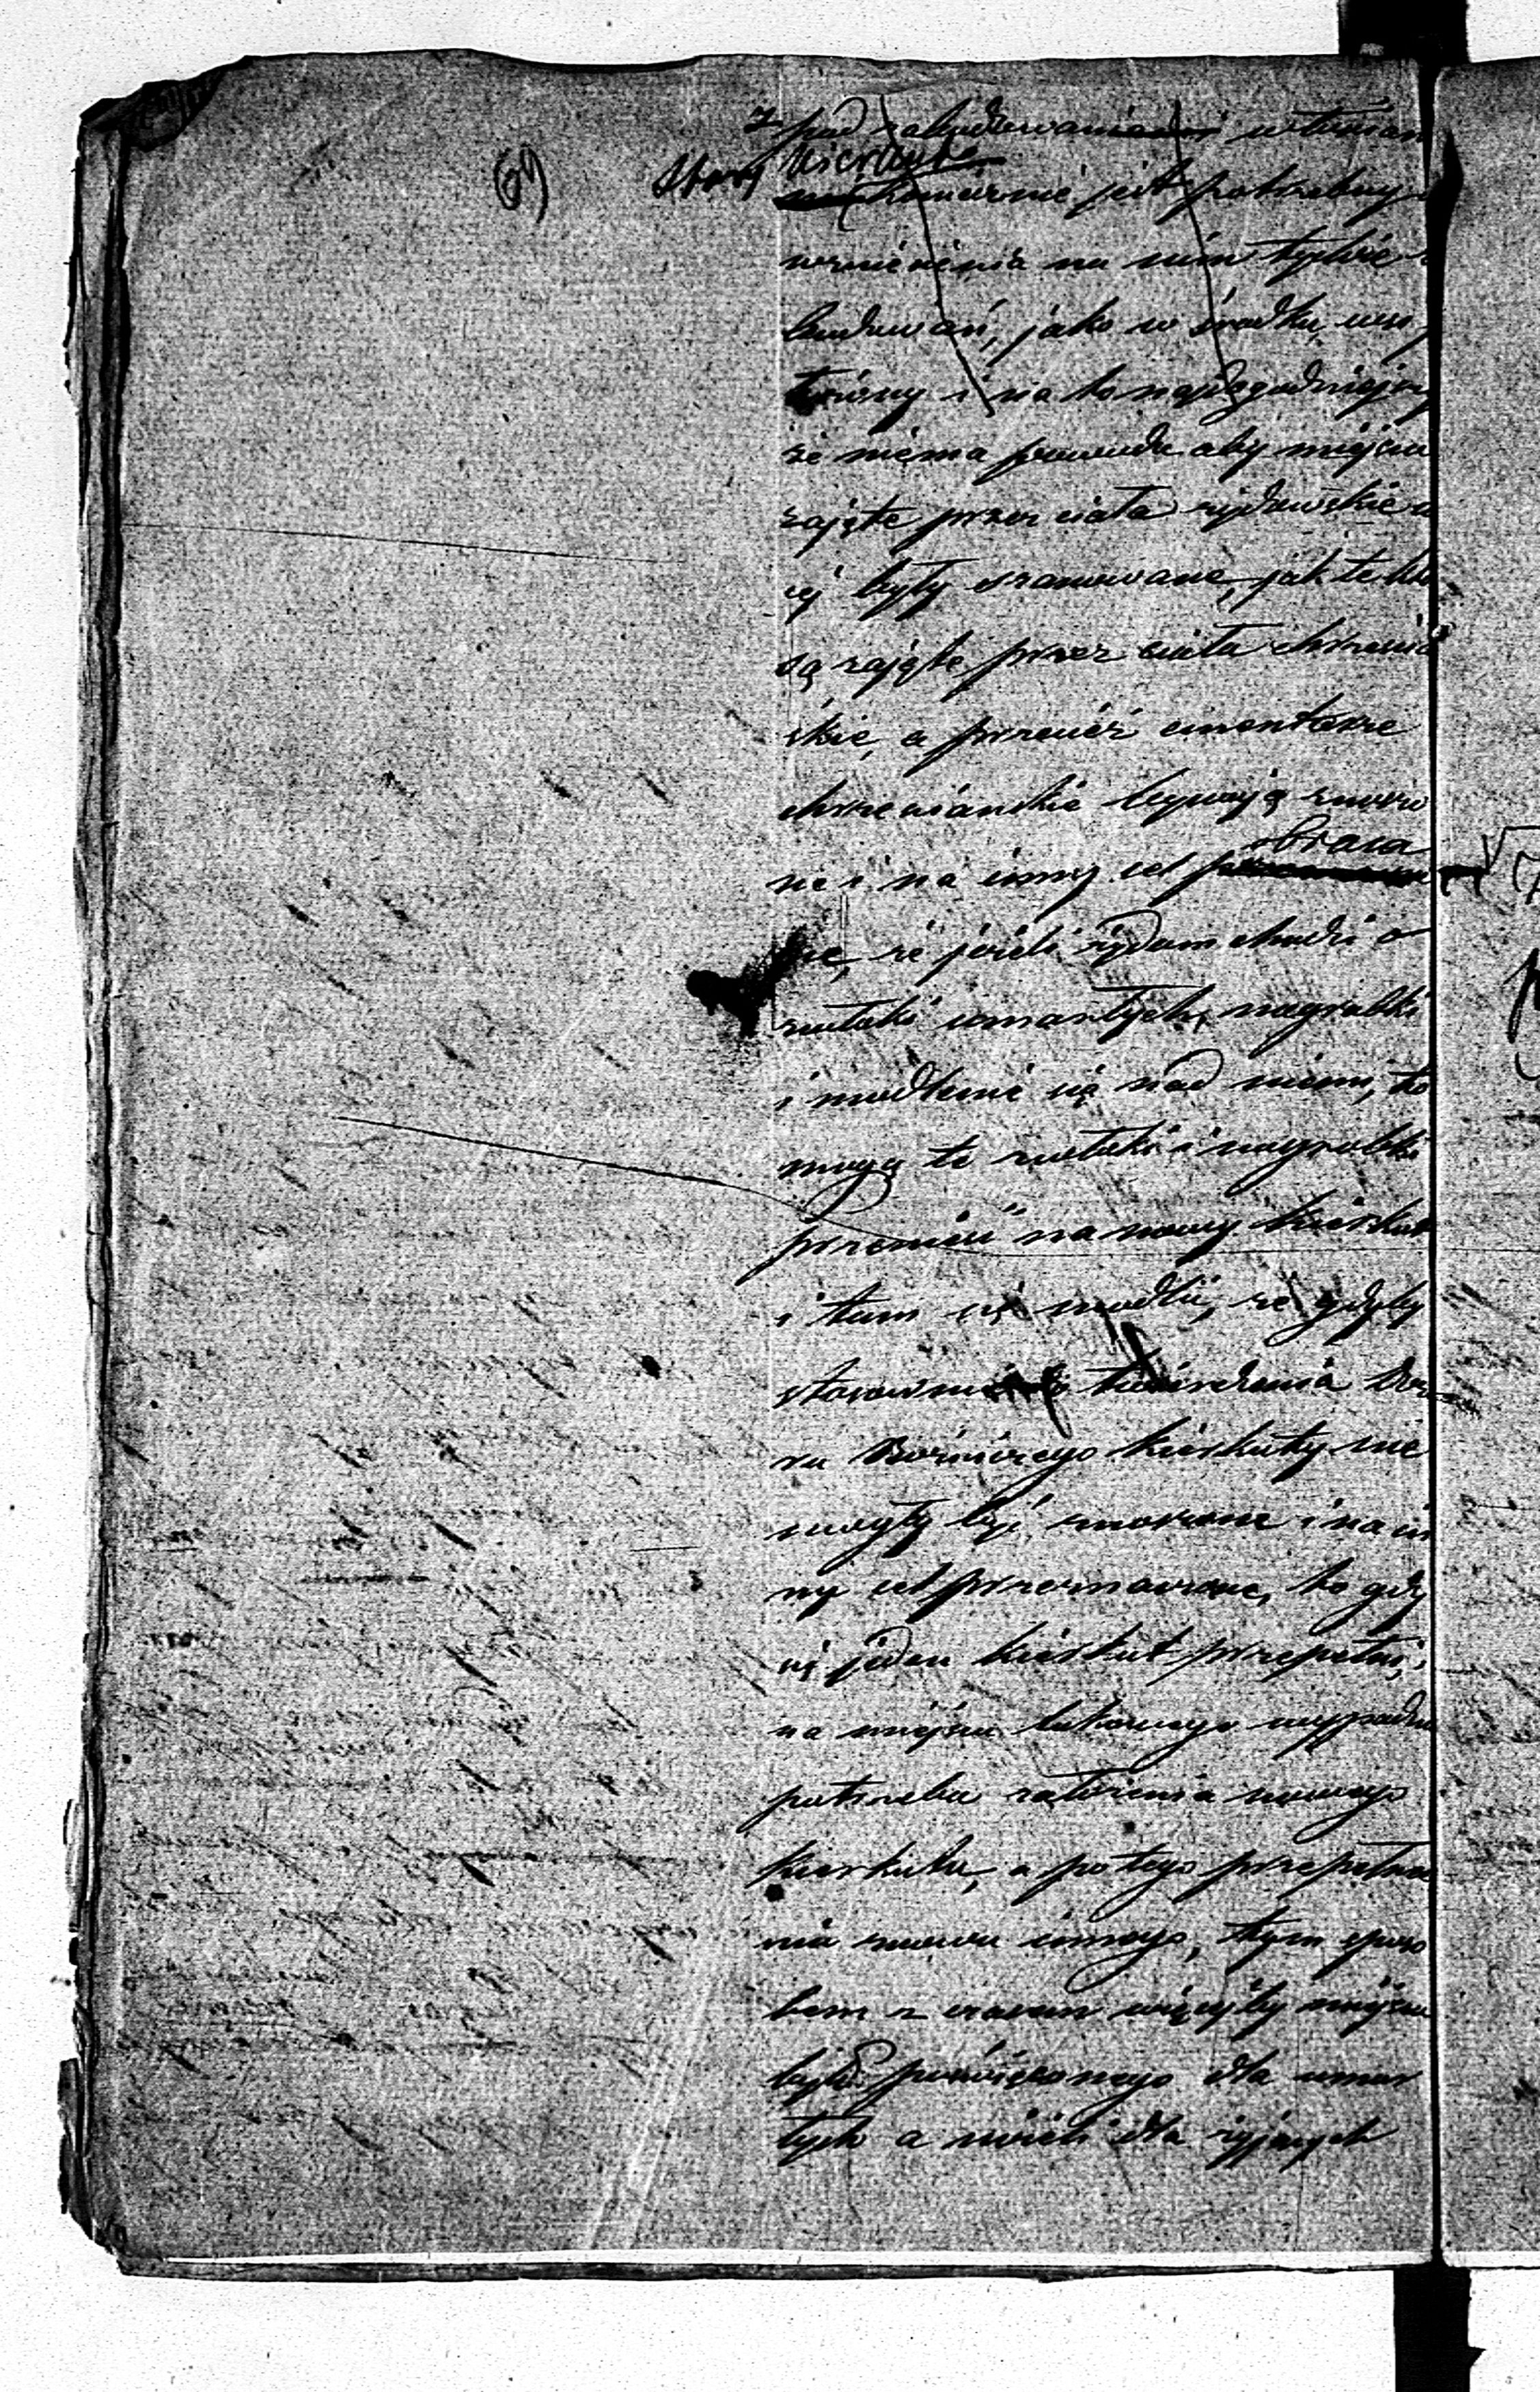 pod zabudowania
Stary Kierkut
koniecznie jest potrzebny
wzniesienia na nim tychże
budowań, jako w środku
i na to najdogodniejszy
że niema powodu aby miejsca
zajęte przez ciała żydowskie
cej były szanowane, jak te
są zajęte przez ciała chrześcia
skie, a przecież cmentarze
chrześcianskie bywają znoszo
ne i na inny cel obraca
ne, że jeżeli żydom chodzi o
zwłoki umarłych, nagrobki
i modlenie się nad niemi, to
mogą te zwłoki i nagrobki
przenieść na nowy kierkut
i tam się modlić, że gdyby
stosownie twierdzenia Do
zoru Bożniczego kierkuty nie
mogły być znoszone i na in
ny cel przeznaczone, to gdy
się jeden kierkut przepełni,
na miejsce takowego wypadnie
potrzeba założenia nowego
kierkutu, a po tego przepełnie
nia znowu innego, tym sposo
bem z czasem więcyby miejsca
było poświęconego dla umar
łych a niżeli dla żyjących